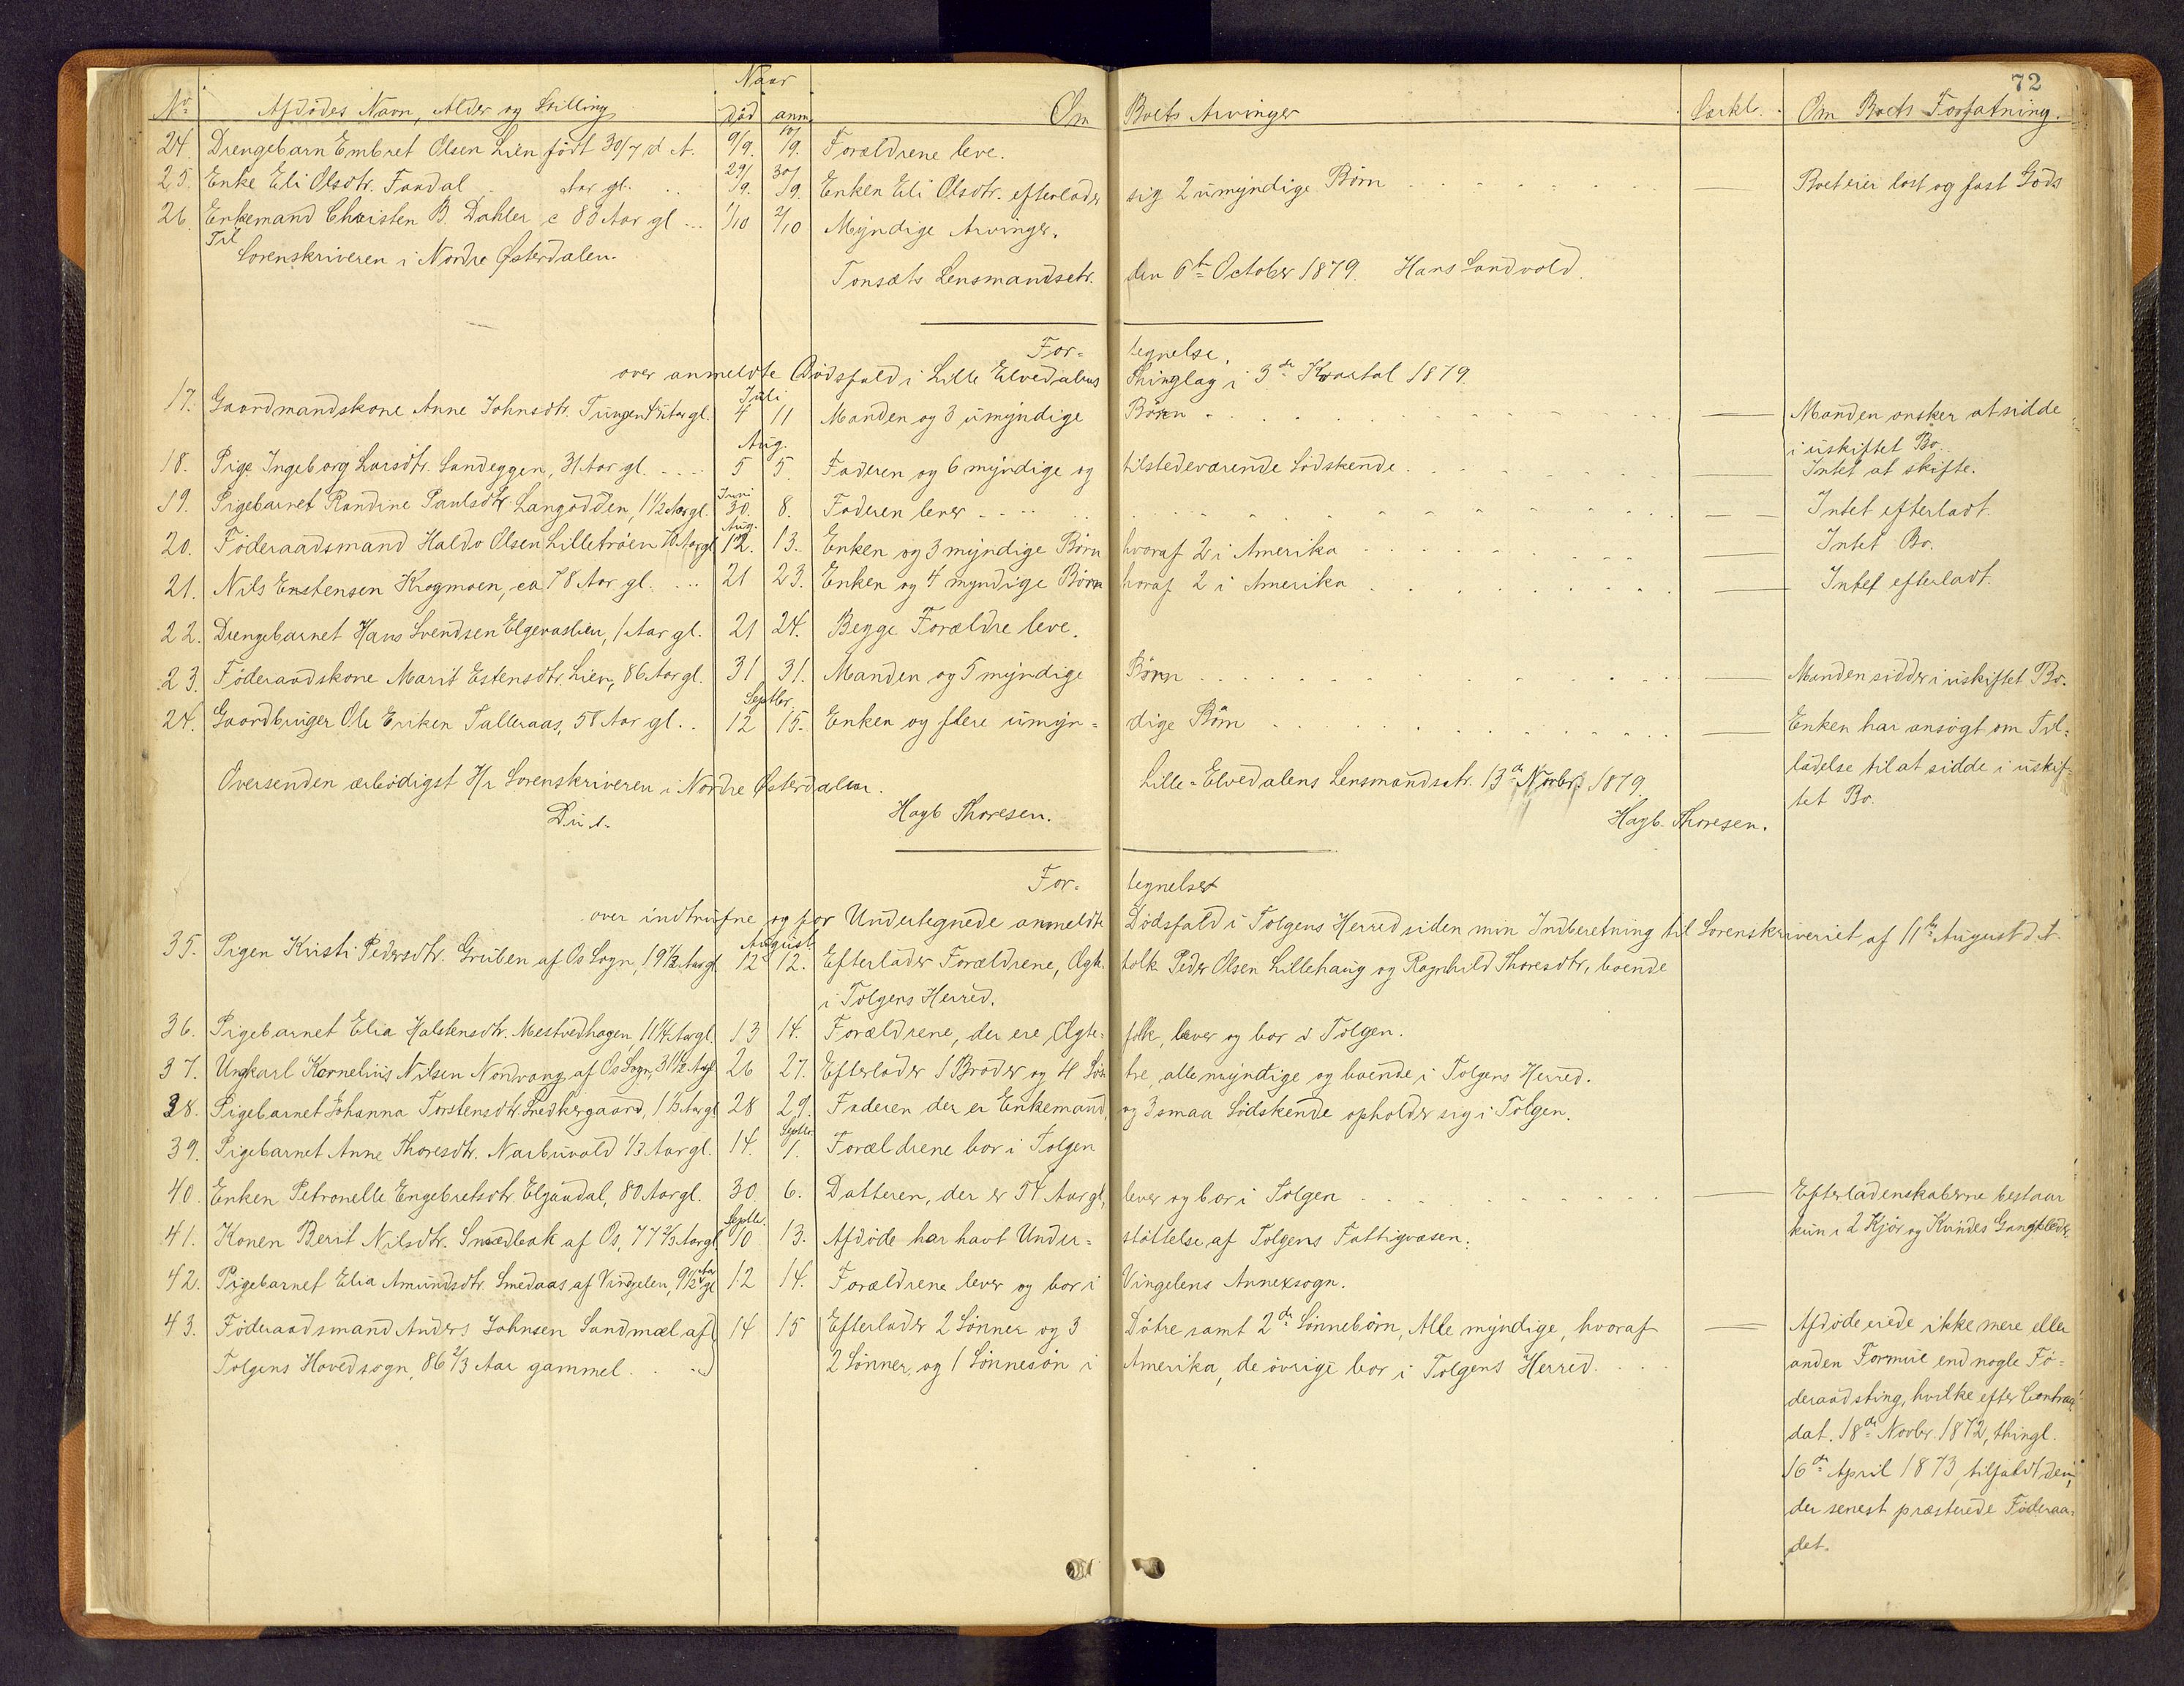 72
Naar
No Afdödes Navn, Alder og Stilling Död anm. Om Boets Arvinger Særkl. Om Boets Forfatning.
24. Drengebarn Embret Olsen Lien födt 30/7 d A. 9/9. 10/9. Forældrene leve.
25. Enke Eli Olsdtr. Fordal Aar gl. 29/9. 30/9. Enken Eli Olsdtr. efterlader sig 2 umyndige Börn — Boet eier löst og fast Gods
26. Enkemand Christen B. Dahler c 83 Aar gl ... 1/10 2/10 Myndige Arvinger.
Til
Sorenskriveren i Nordre Østerdalen.
Tonsæts Lensmandsetr. den 6te October 1879. Hans Sandvold.
For= tegnelse.
over anmeldte Dödsfald i Lille Elvedalens Thinglag i 3de Kvartal 1879.
Juli
17. Gaardmandskone Anne Johnsdtr. Tungen Aar gl. 4 11 Manden og 3 umyndige Börn — Manden ønsker at sidde
i uskiftet Bo.
Aug.
18. Pige Ingeborg Larsdtr. Sandeggen, 31 Aar gl. 5 5. Faderen og 6 myndige og tilstedeværende Södskende. — Intet at skifte.
Juni
19. Pigebarnet Randine Paulsdtr. Langödden, 1 1/2 Aar gl. 30. 8. Faderen lever — Intet efterladt.
Aug.
20. Föderaadsmand Haldo Olsen Lilletröen 70 Aar gl 12. 13. Enken og 3 myndige Börn hvoraf 2 i Amerika — Intet Bo.
21. Nils Enstensen Krogmoen, ca 78 Aar gl. ... 21 23. Enken og 4 myndige Börn horaf 2 i Amerika — Intet efterladt.
22. Drengebarnet Hans Svendsen Elgevaslien, 1 Aar gl. 21 24. Begge Forældre leve.
23. Föderaadskone Marit Estensdtr. Lien, 86 Aar gl. 31 31. Manden og 5 myndige Börn — Manden sidder i uskiftet Bo.
Septbr.
24. Gaardbruger Ole Eriken Talleraas, 58 Aar gl. 12 15. Enken og flere umyn= dige Börn — Enken har ansögt om Til=
ladelse til at sidde i uskif=
tet Bo.
Oversendes ærbödigst Hr Sorenskriveren i Nordre Østerdalen. Lille-Elvedalens Lensmandsetr. 13de Novbr. 1879.
D.u.s. Hagb Thoresen. Hagb. Thoresen.
For= tegnelse
over indtrufne og for Undertegnede anmeldte Dödsfald i Tolgens Herred siden min Indberetning til Sorenskriveriet af 11te August d. A.
August
35. Pigen Kristi Pedersdtr. Gruben af Os Sogn, 19 1/2 Aar gl 12 12. Efterlader Forældrene, Ægte folk Peder Olsen Lillehaug og Ragnhild Thoresdtr, boende
i Tolgens Herred.
36. Pigebarnet Elia Halstensdtr. Mestvedhagen, 11 1/4 Aar gl. 13 14. Forældrene, der ere Ægte= folk, lever og bor i Tolgen.
37. Ungkarl Kornelius Nilsen Nordvang af Os Sogn, 31 1/2 Aar gl 26 27. Efterlader 1 Broder og 4 Søs tre, alle myndige og boende i Tolgens Herred.
38. Pigebarnet Johanna Torstensdtr. Snedkergaard, 1 1/3 Aar gl 28 29. Faderen der er Enkemand, og 3 smaa Södskende opholder sig i Tolgen.
Septbr.
39. Pigebarnet Anne Thoresdtr. Narbuvold 1/3 Aar gl. 14. 1. Forældrene bor i Tolgen
40. Enken Petronelle Engebretsdtr. Elgaadal, 80 Aar gl. 30. 6. Datteren, der er 54 Aar gl, lever og bor i Tolgen — Efterladenskaberne bestaar
kun i 2 Kjör og Kvindes Gangklæder
Septbr.
41. Konen Berit Nilsdtr. Smedbak af Os, 77 2/3 Aar gl 10 13. Afdöde har havt Under= støttelse af Tolgens Fattigvæsen.
42. Pigebarnet Elia Amundsdtr. Smedaas af Vingelen, 9 1/2 Aar gl 12 14. Forældrene lever og bor i Vingelens Annexsogn.
43. Föderaadsmand Anders Johnsen Sandmæl af 14 15 Efterlader 2 Sönner og 3 Dötre samt 2de Sönnebörn, Alle myndige, hvoraf — Afdöde eiede ikke mere eller
Tolgens Hovedsogn, 86 2/3 Aar gammel. 2 Sönner, og 1 Sönnesön i Amerika, de övrige bor i Tolgens Herred. anden Formue end nogle Fö=
deraadsting, hvilke efter Contract
dat. 18de Novbr. 1872, thingl.
16de April 1873, tilfaldt den,
der senest præsterede Föderaa=
det.